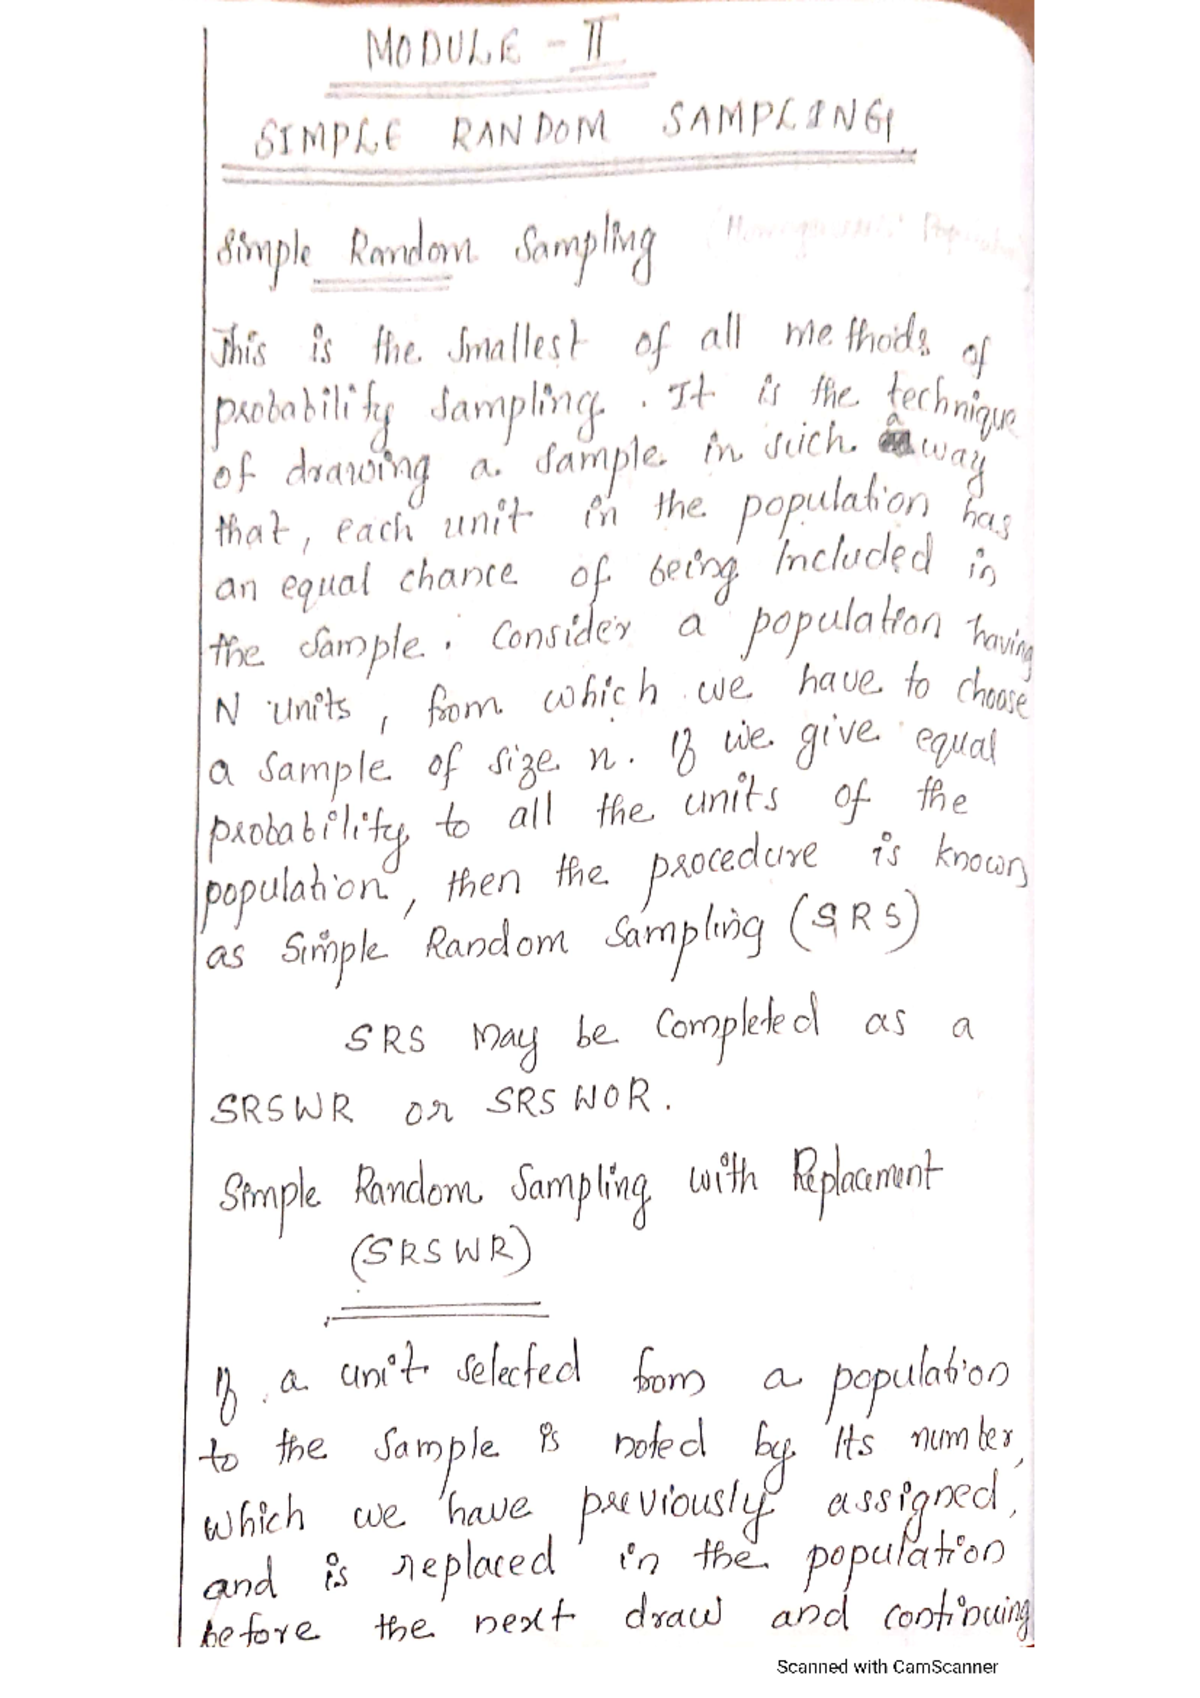 MODULE - II
SIMPLE RANDOM SAMPLING
Simple Random Sampling
This is the smallest of all methods of
probability sampling. It is the technique
of drawing a sample in such a way
that, each unit in the population has
an equal chance of being Included in
the sample. Consider a population having
N units, from which we have to choose
a sample of size n. If we give equal
probability to all the units of the
population, then the procedure is known
as Simple Random Sampling (SRS)
SRS May be Completed as a
SRSWR or SRSWOR.
Simple Random Sampling with Replacement
(SRSWR)
If a unit selected from a population
to the sample is noted by Its number,
which we have previously assigned,
and is replaced in the population
before the next draw and continuing
Scanned with CamScanner